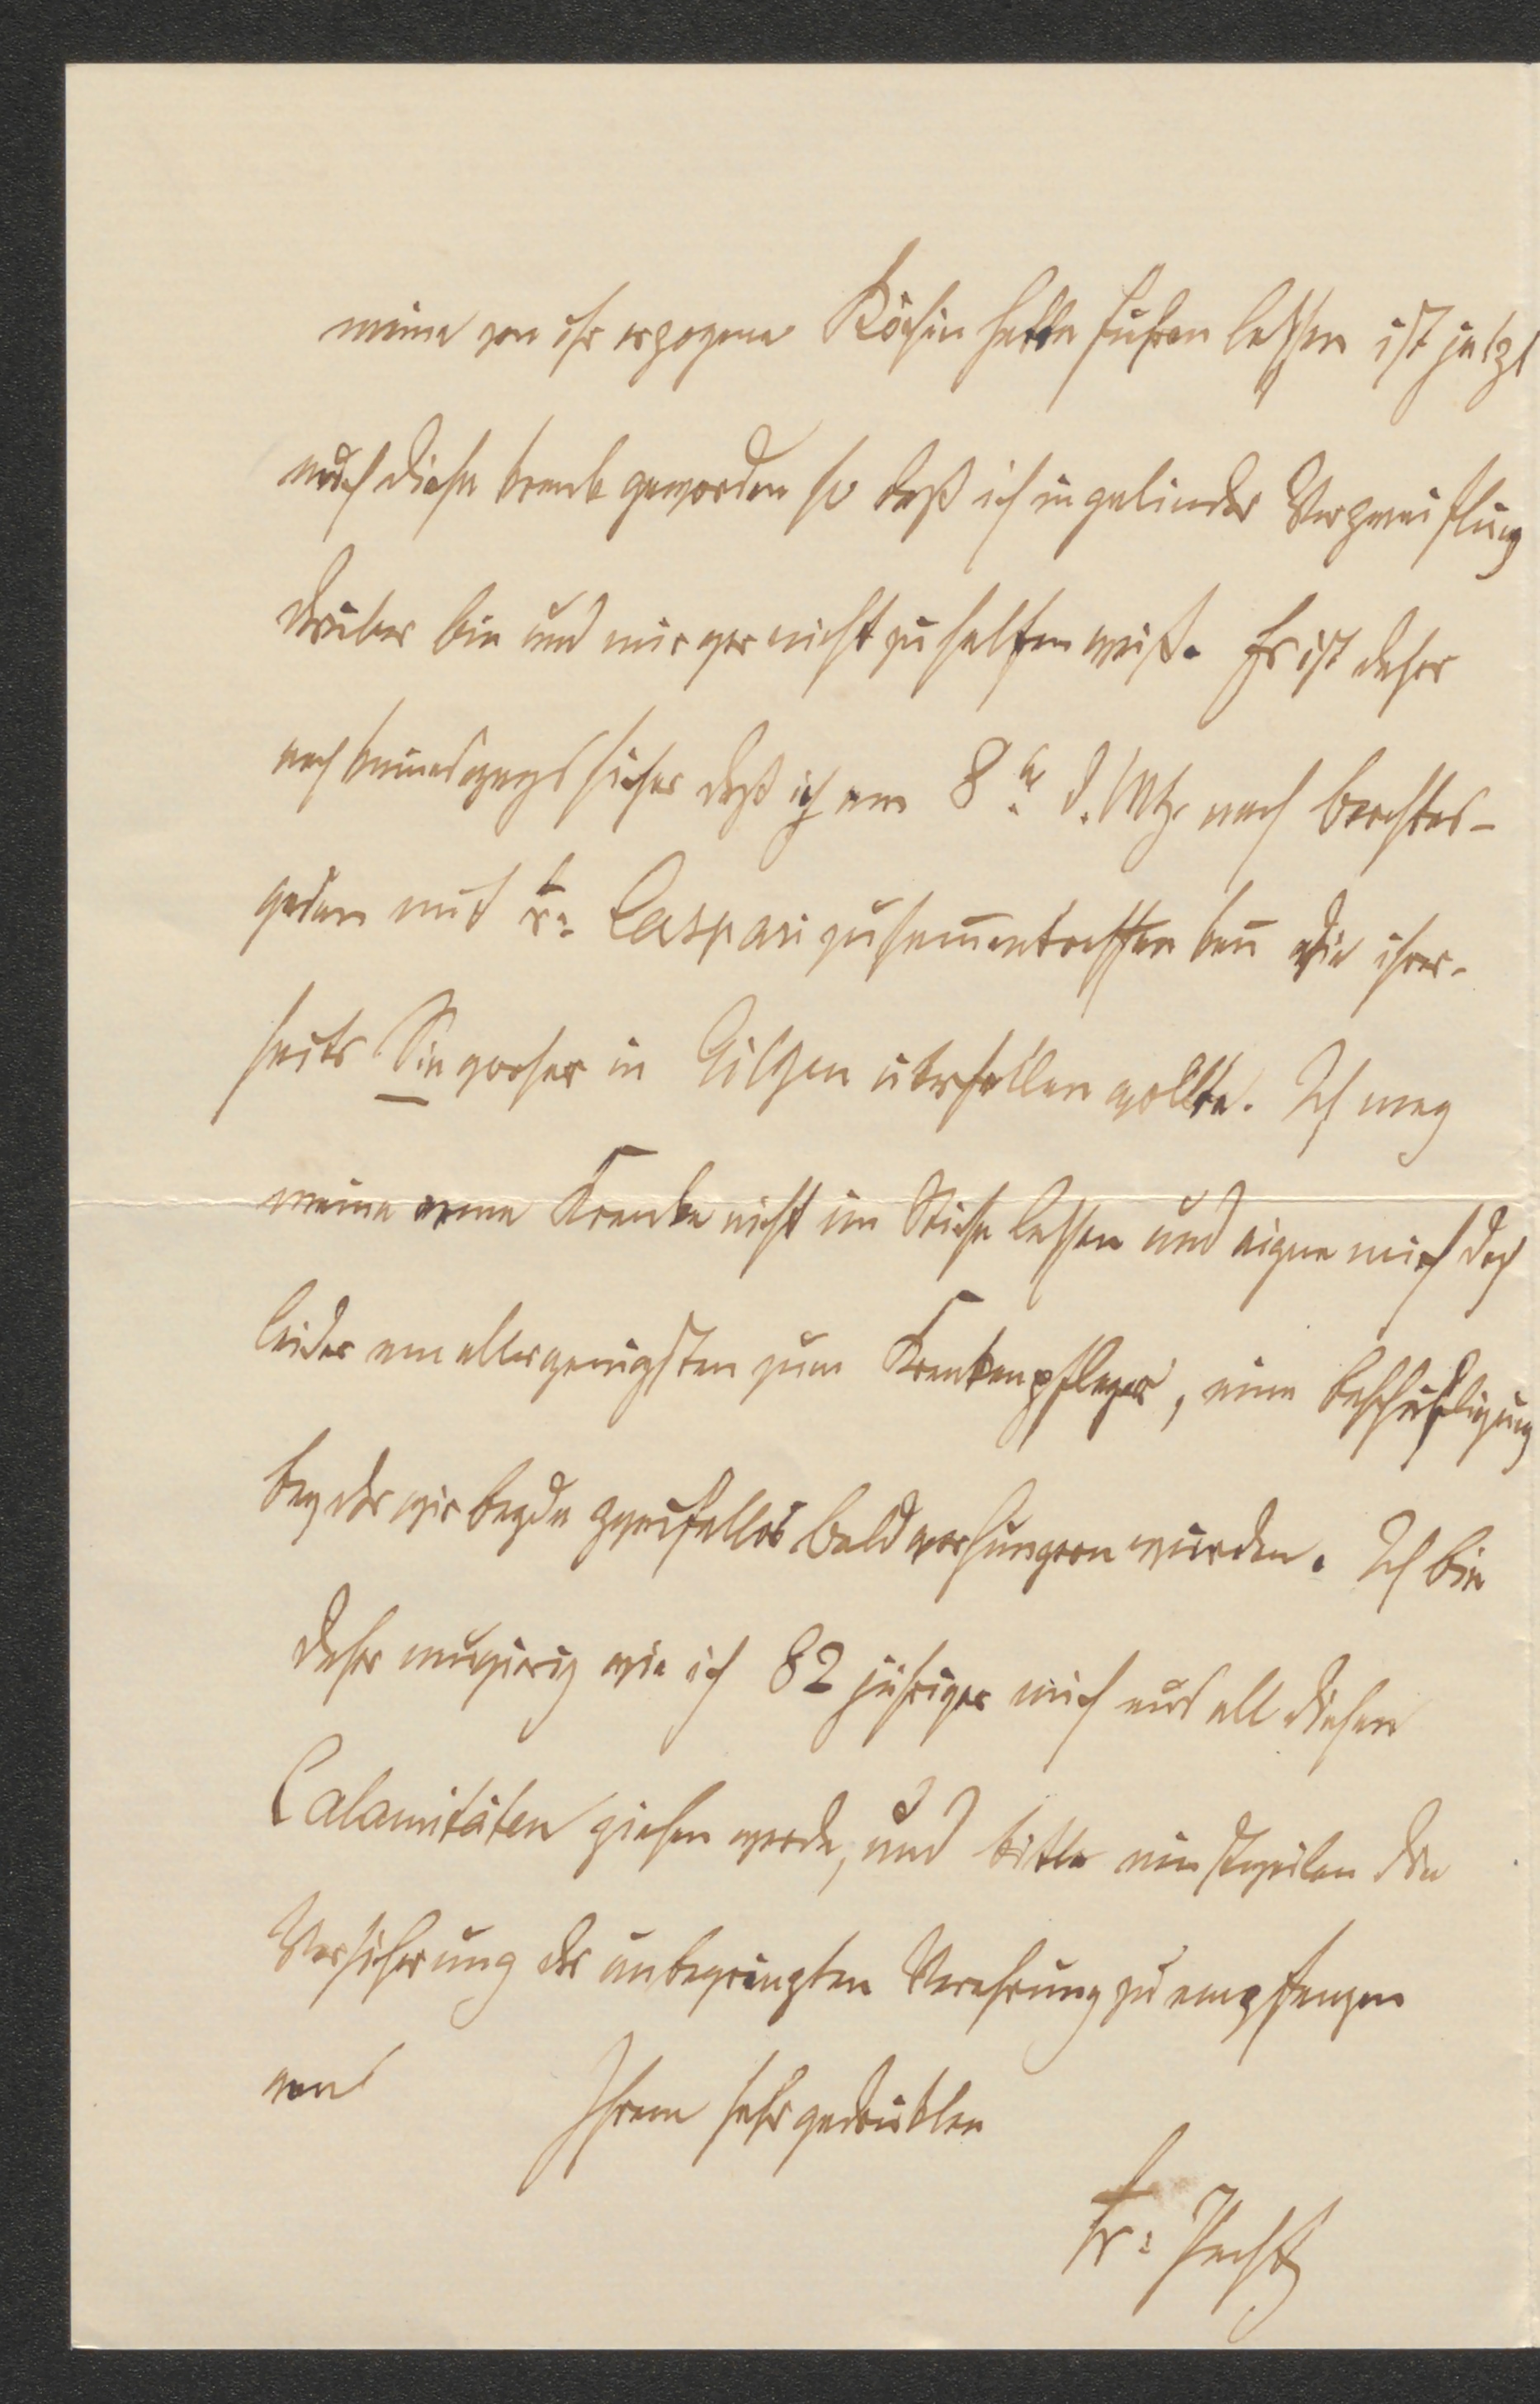 meine von ihr erzogene Köchin hatte führen lassen ist jetzt
auch diese krank geworden so daß ich in gelinder Verzweiflung
drüber bin und mir gar nicht zu helfen weiß. Es ist daher
noch keineswegs sicher daß ich am 8ten d. Mts. nach Berchtes-
gaden mit Fr: Caspari zusammentreffen kan̄ die ihrer-
seits Sie vorher in Gilgen überfallen wollte. Ich mag
meine arme Kranke nicht im Stiche lassen und eigne mich doch
leider am allerwenigsten zum Krankenpfleger, eine Beschäftigung
bey der wir beyde zweifellos bald verhungern würden. Ich bin
daher neugierig wie ich 82 jähriger mich aus all diesen
Calamitäten ziehen werde, und bitte einstweilen die
Versicherung der unbegrenzten Verehrung zu empfangen
von Ihrem sehr gedrückten
Fr: Pecht